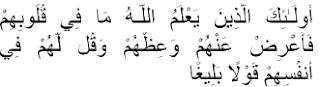 أُولَـٰئِكَ الَّذِينَ يَعْلَمُ اللَّـهُ مَا فِي قُلُوبِهِمْ
فَأَعْرِضْ عَنْهُمْ وَعِظْهُمْ وَقُل لَّهُمْ فِي
أَنفُسِهِمْ قَوْلًا بَلِيغًا